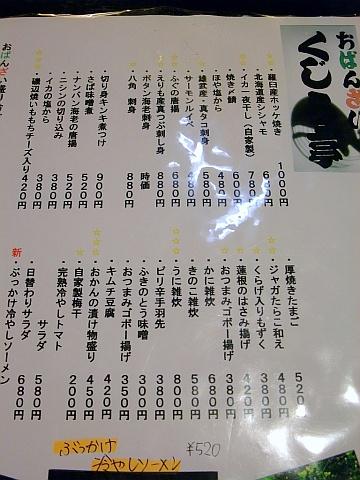 おばんざい
くじら亭
・羅臼産ホッケ焼き 1000円
・北海道産シシャモ 680円
・イカ一夜干し(自家製) 780円
・焼き〆鯖 600円
・ほや塩から 480円
・雄武産・真タコ刺身 580円
・サーモンルイベ 480円
・ふぐの唐揚 680円
・えりも産真つぶ刺し身 880円
・ボタン海老刺身 時価
・八角 刺身 880円
・切り身キンキ煮つけ 900円
・さば味噌煮 520円
・ナンバン海老の唐揚 520円
・ニシンの切り込み 380円
・イカの塩から 380円
・磯辺焼いももちチーズ入り 420円
おばんざい盛り
・厚焼きたまご 520
・ジャガたらこ和え 480円
・くらげ入りもずく 380円
・蓮根のはさみ揚げ 420円
・おつまみゴボー揚げ 380円
・かに雑炊 680円
・きのこ雑炊 580円
・うに雑炊 800円
・ピリ辛手羽先 380円
・ふきのとう味噌 300円
・おつまみゴボー揚げ 350円
・キムチ豆腐 420円
・おかんの漬け物盛り 450円
・自家製梅干 200円
・完熟冷やしトマト
サラダ
・日替わりサラダ 580円
新・ぶっかけ冷やしソーメン 680円
ぶっかけ
冷やしソーメン
¥520